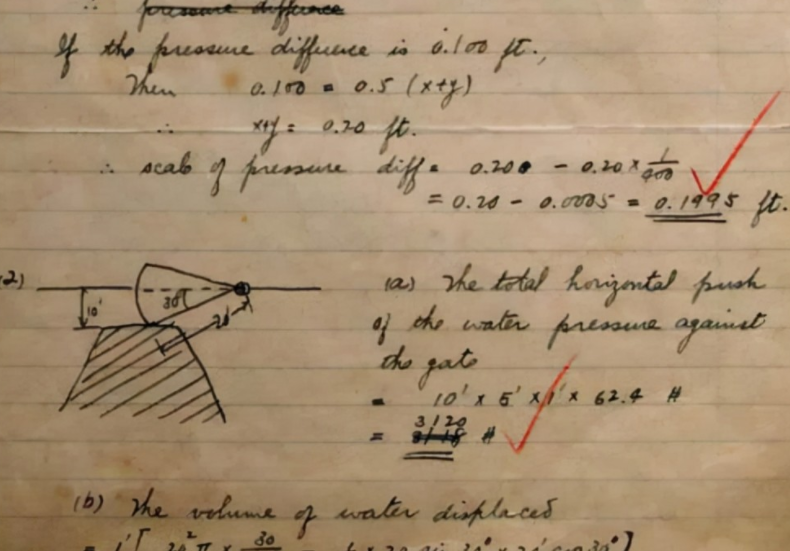 ∴ pressure difference
If the pressure difference is 0.100 ft.,
Then 0.100 = 0.5 (x+y)
∴ x+y = 0.20 ft.
∴ scale of pressure diff = 0.200 - 0.20 × 1/400
= 0.20 - 0.0005 = 0.1995 ft.
2)
10'
30°
20'
(a) The total horizontal push
of the water pressure against
the gate
= 10' × 5' × 1' × 62.4 #
= 3120 #
(b) The volume of water displaced